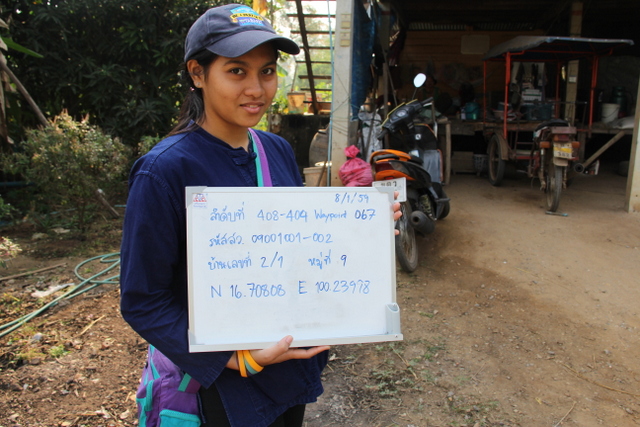 8/1/59
ลำดับที่ 408-409 Waypoint 067
รหัสสว. 09001001-002
บ้านเลขที่ 2/1 หมู่ที่ 9
N 16.70808 E 100.23978